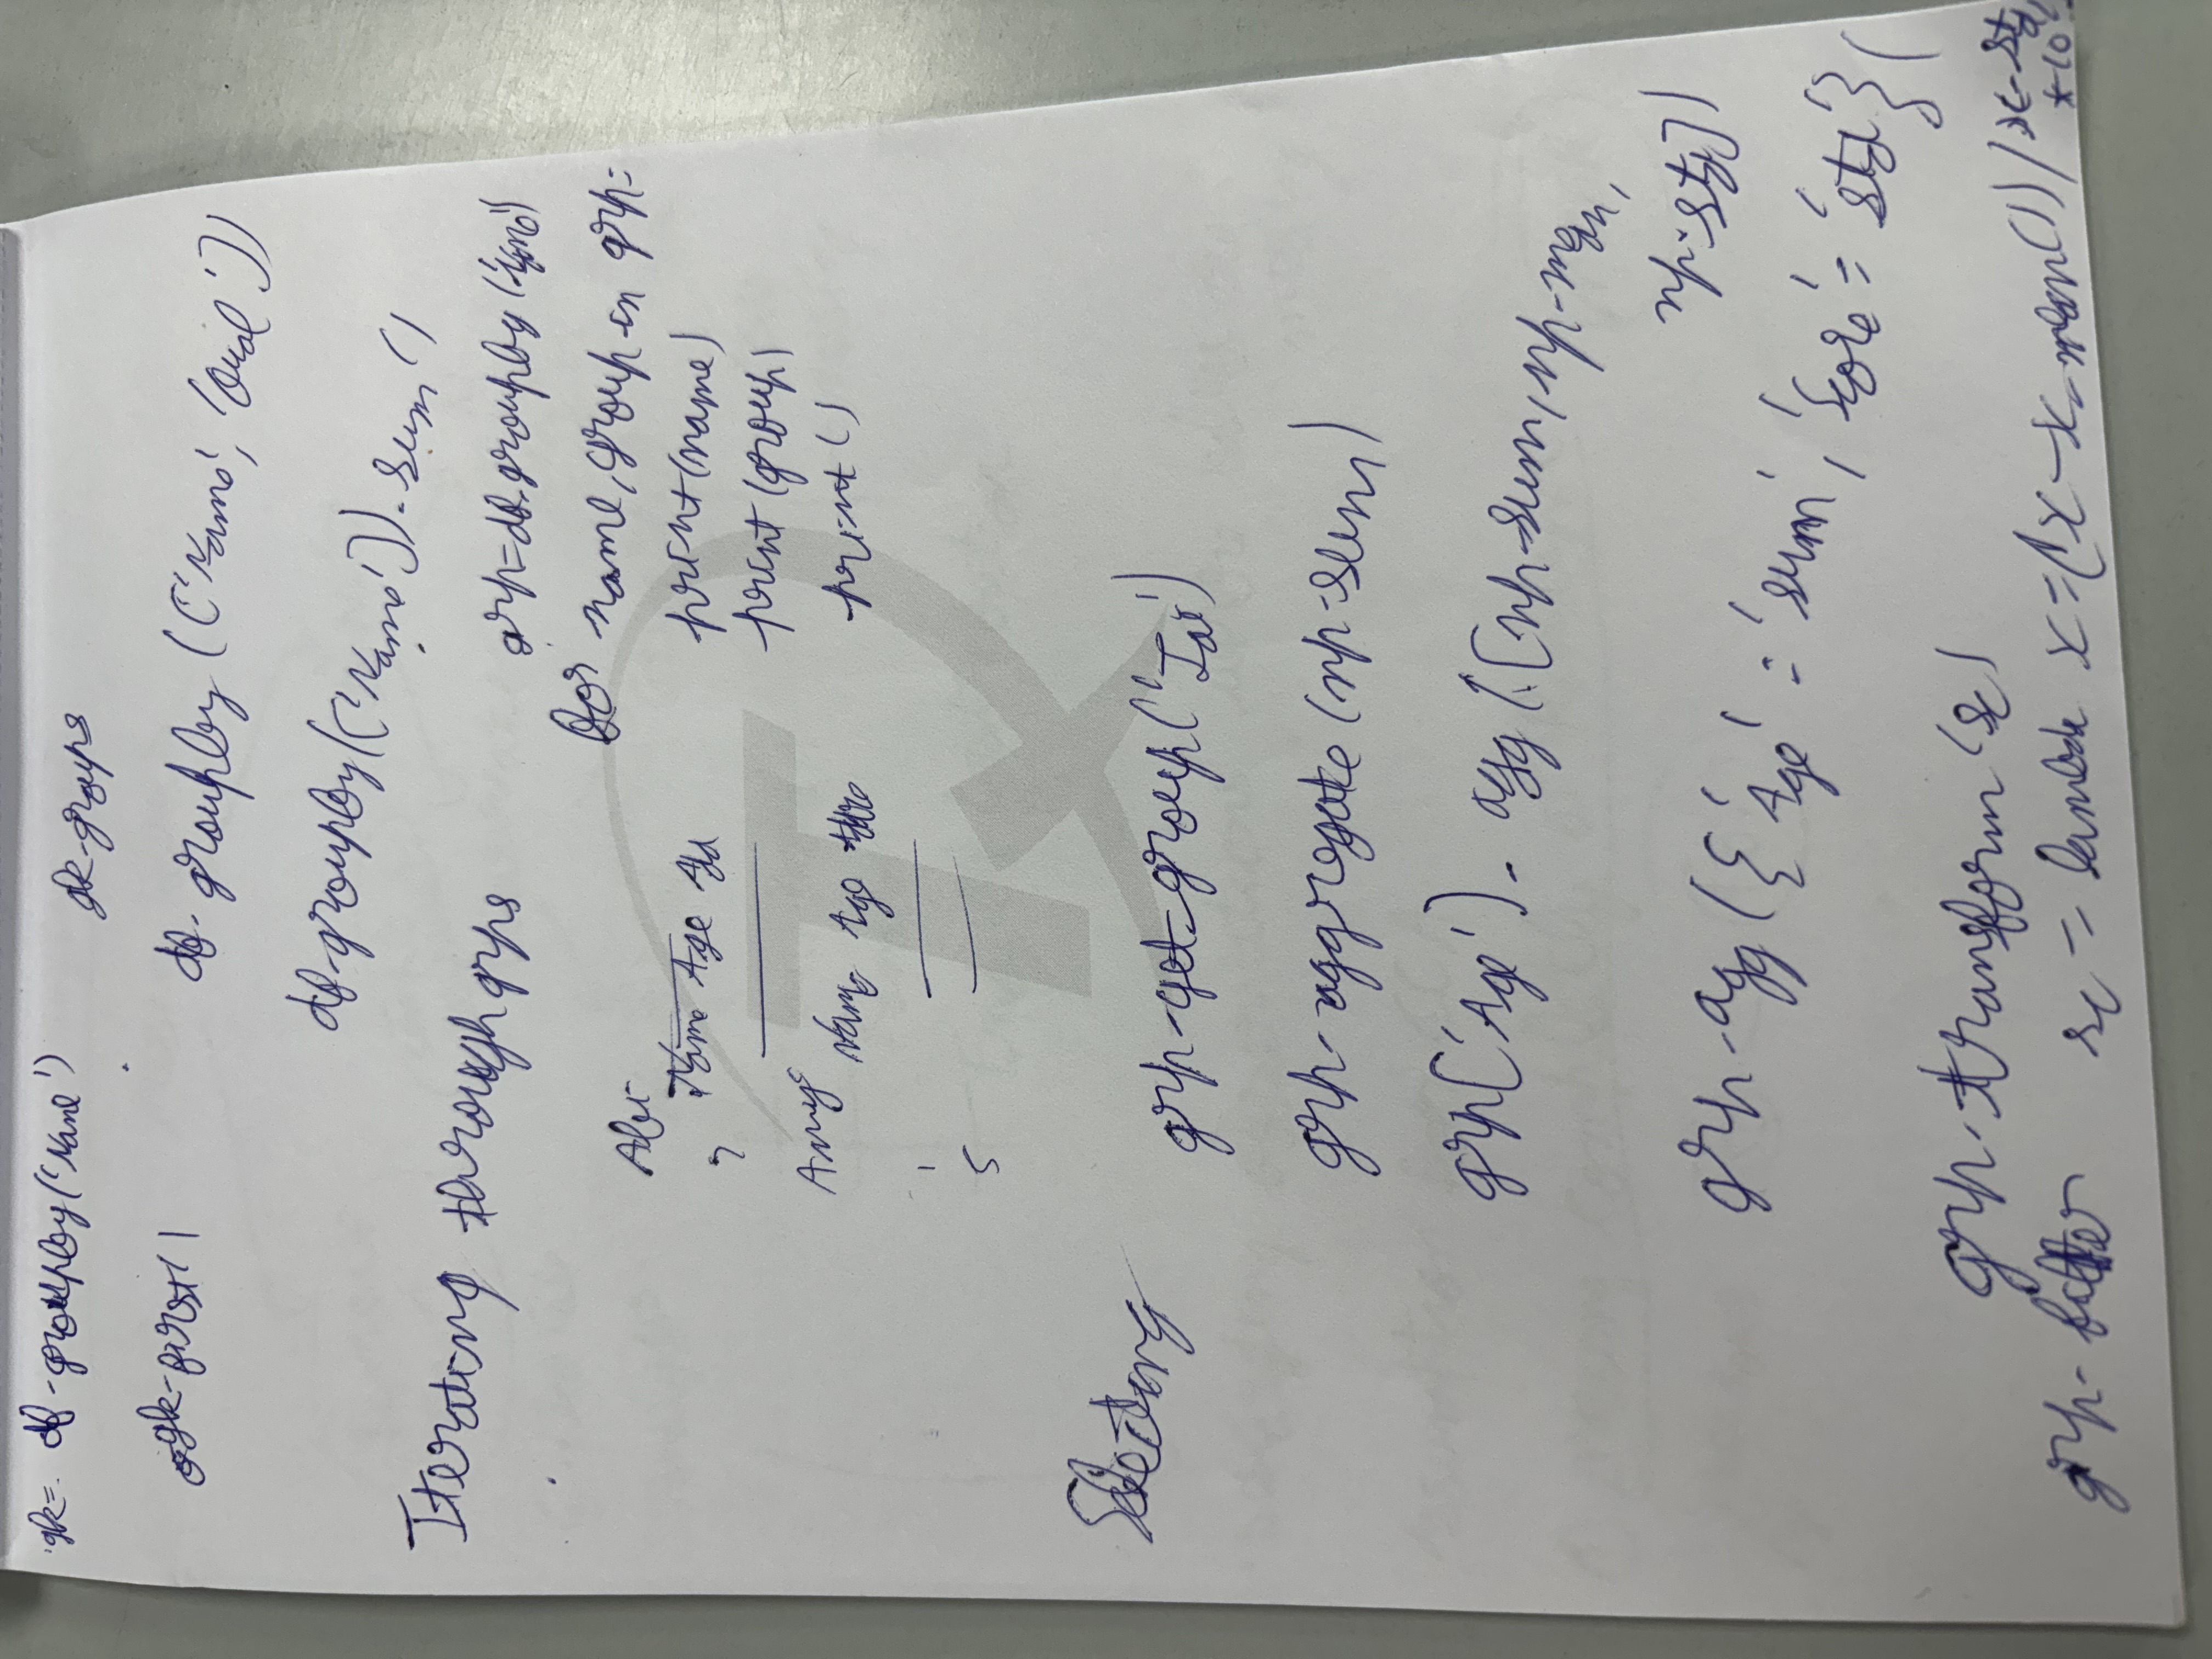 gk = df.groupby('Name')
gk.groups
gk.first()
df.groupby(['Name', 'Qual'])
df.groupby(['Name']).sum()
Iterating through grps
grp=df.groupby('Name')
for name, group in grp:
print(name)
print(group)
print()
Name Age
Name Age
Selecting
grp.get_group('Jai')
grp.aggregate(np.sum)
grp['Age'].agg([np.sum, np.mean,
np.std])
grp.agg({'Age' : 'sum', 'Score' : 'std'})
grp.transform(sc)
grp.filter
sc = lambda x:(x-x.mean())/x.std
*10